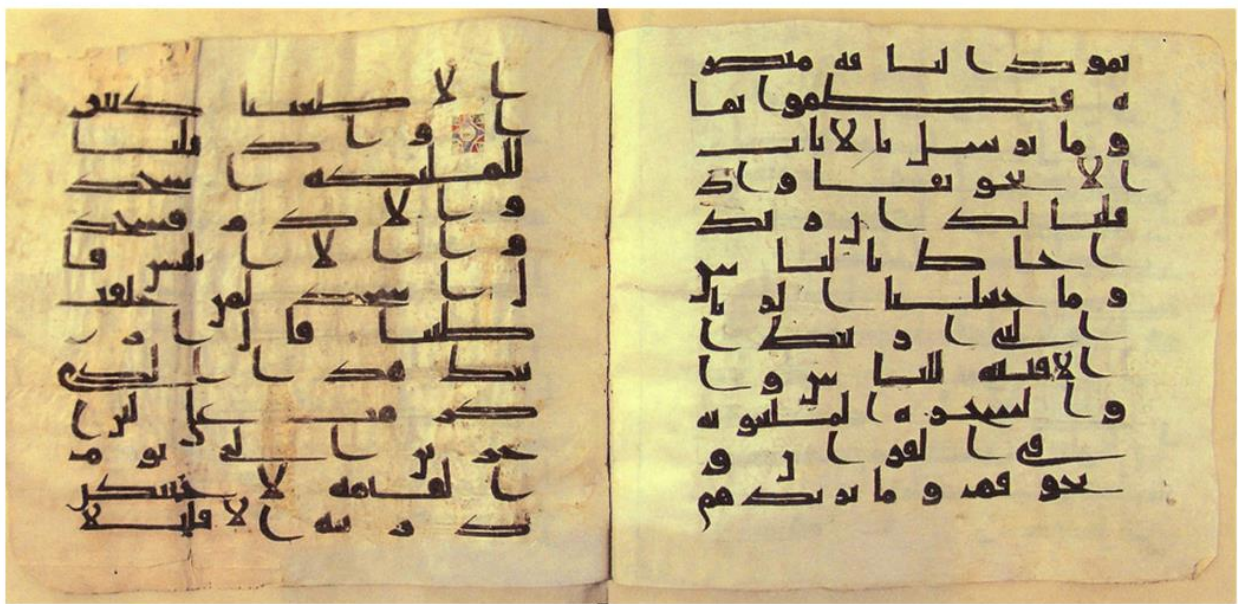 ثمود الناقة مبصر
ة فظلموا بها
و ما نرسل بالايت
الا تخويفا و اذ
قلنا لك ان ربك
احاط بالناس
و ما جعلنا الريا
التي ارينك
الا فتنة للناس و ا
لشجرة الملعونة
في القران و
نخوفهم و ما يزيدهم
ا لا طغينا كبير
ا و اذ قلنا
للملئكة اسجد
وا لادم فسجد
وا الا ابليس قا
ل اسجد لمن خلقت
طينا قال ار
يتك هذا الذي
كرمت علي لئن ا
خرتن الى يوم
القيمة لاحتنكن
ذريته الا قليلا